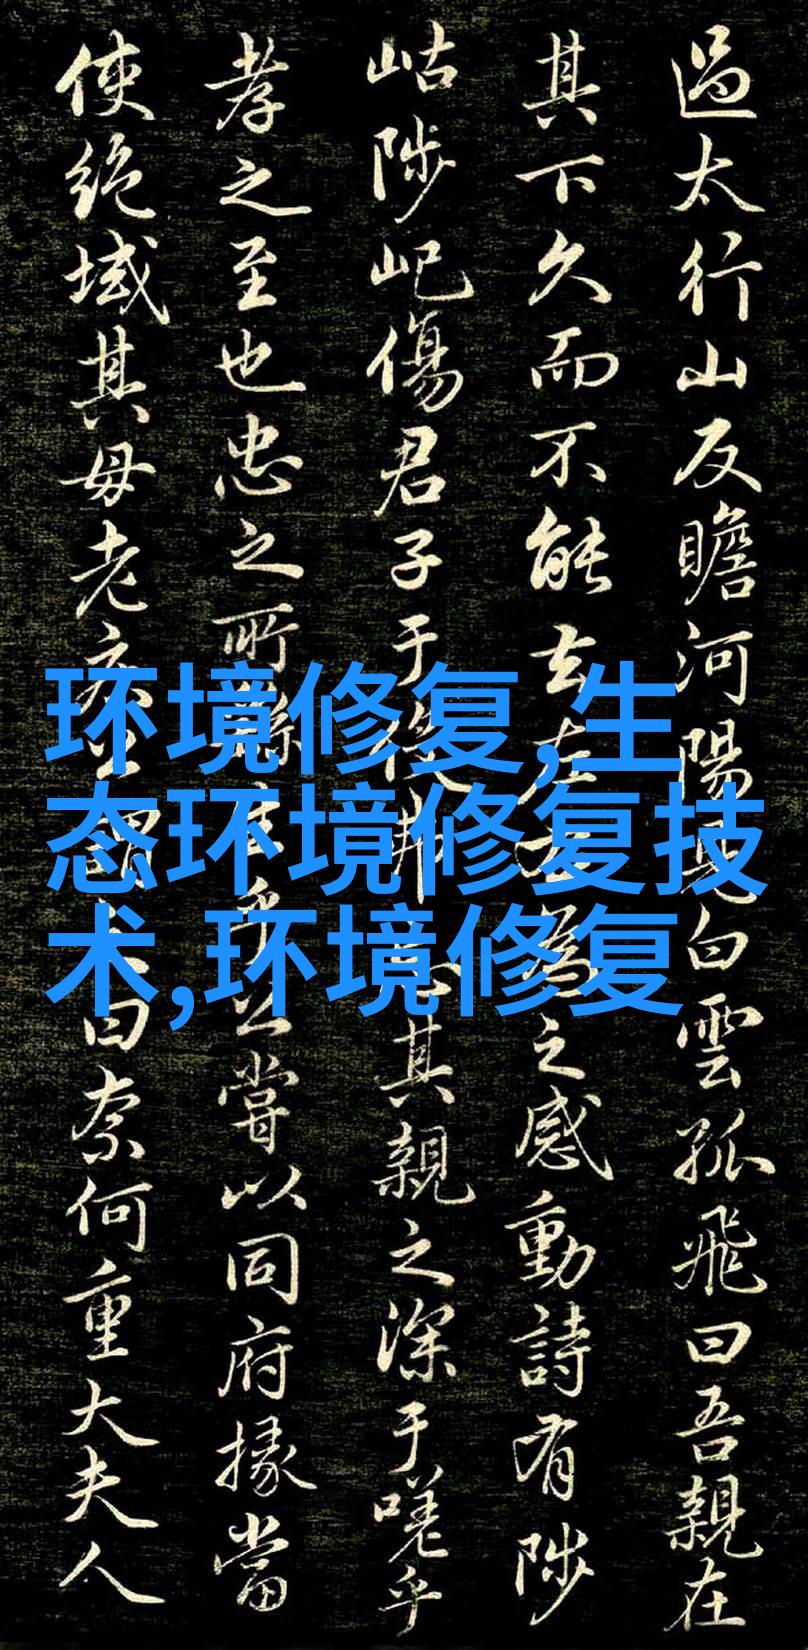 過太行山反瞻河陽見白雲孤飛曰吾親在
其下久而不能去左右為之感動詩有陟
岵陟屺傷君子于役弗忘其親之深于嗟乎
孝之至也忠之所繇生乎公嘗以同府掾當
使絕域其母老疾公謂之曰奈何重大夫人
环境修复,生
态环境修复技
术,环境修复